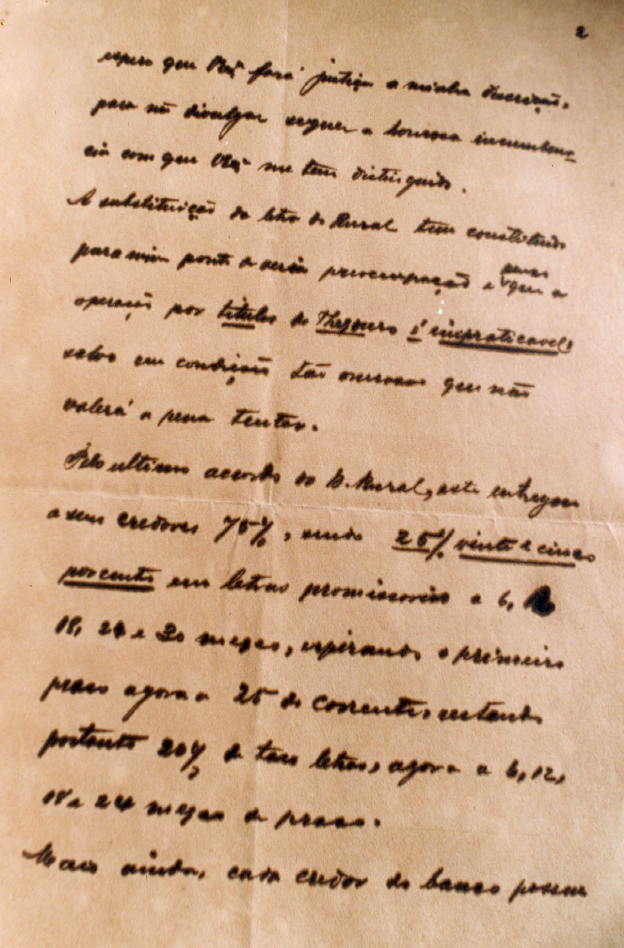 2
espero que VExª fará justiça a minha discrição,
para não divulgar sequer a honrosa incumben-
cia com que VExª me tem distinguido.
A substituição da letra do Rural tem constituido
para mim ponto de seria preocupação e para que a
operação por titulos do Thesouro é impraticavel,
salvo em condições tão onerosas que não
valerá a pena tentar.
Pelo ultimo accordo do B. Rural, este entregou
a seus credores 75%, sendo 25% vinte e cinco
por cento em letras promissorias a 6, 12
18, 24 e 30 mezes, expirando o primeiro
prazo agora a 25 do corrente, restando
portanto 20% de taes letras, agora a 6, 12,
18 e 24 mezes de prazo.
Mais ainda, cada credor do banco possue